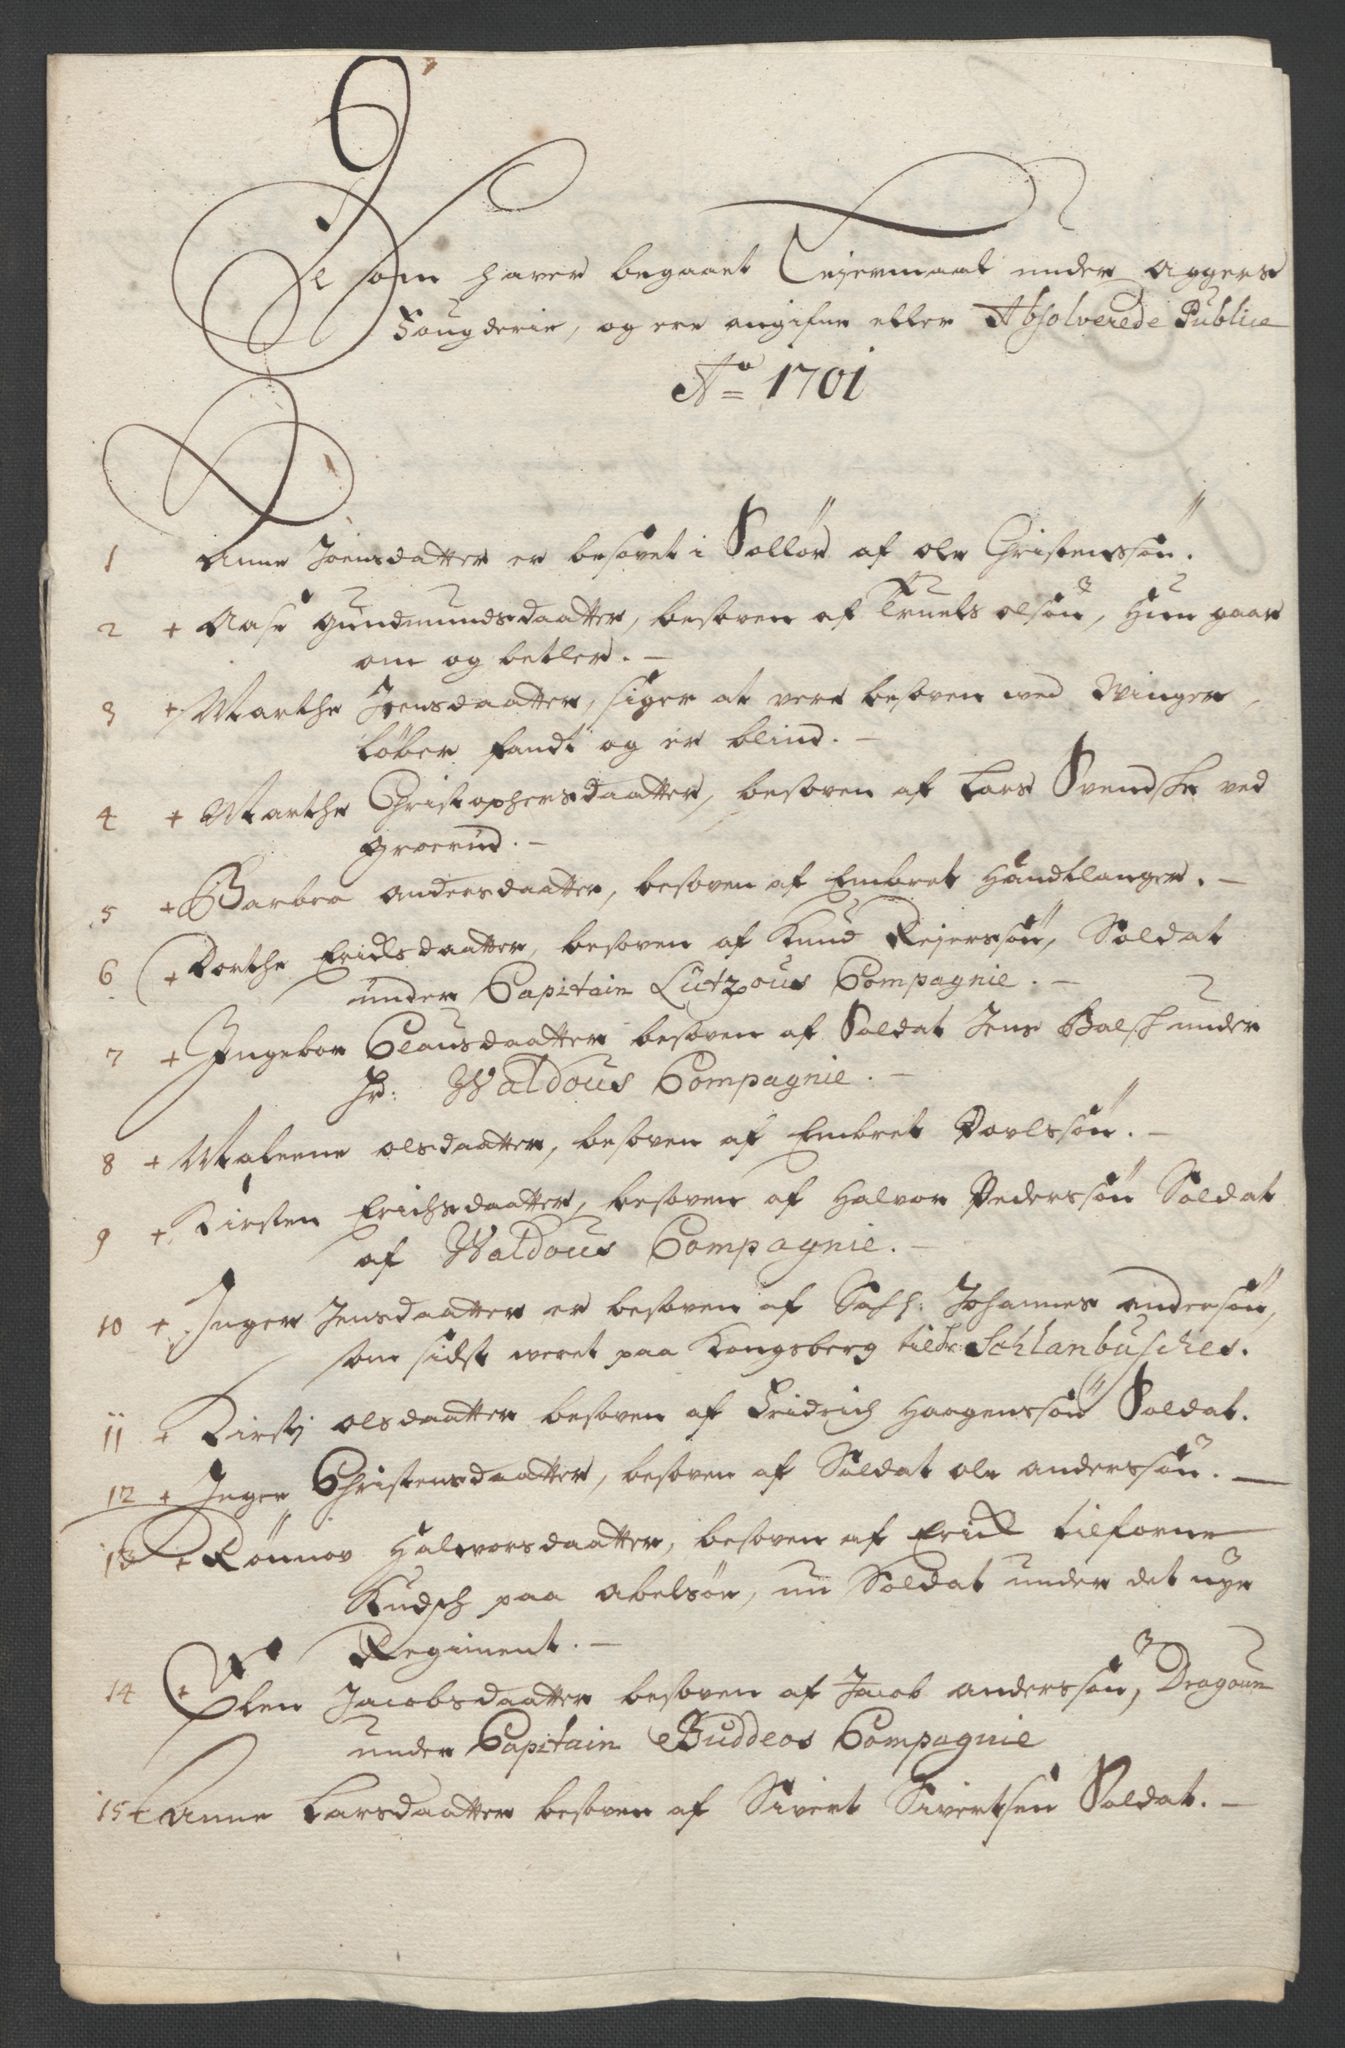 De som haver begaaet Leiermaal under Aggers
Fougderie, og ere angifne eller Absolverede Publice
Ao 1701
1 Anne Joensdatter er besovet i Sollør af Ole Christenssøn.
2 + Aase Gundmundsdaatter, besoven af Truels olsøn, Hun gaar
om og betler. –
3 + Marthe Joensdaatter, siger at vere besoven ved Winger,
løber fandt og er blind. –
4 + Marthe Christophersdaatter, besoven af Lars Svendske ved
Groerud. –
5 + Barbro Andersdaatter, besoven af Embret Handtlanger. –
6 + Dorthe Erichsdaatter, besoven af Knud Reierssøn, Soldat
under Capitain Lützous Compagnie. –
7 + Ingebor Clausdaatter besoven af Soldat Jens Balsch under
Hr: Waldous Compagnie. –
8 + Maleene olsdaatter, besoven af Embret Povlssøn. –
9 + Kirsten Erichsdaatter, besoven af Halvor Pederssøn Soldat
af Waldous Compagnie. –
10 + Inger Jensdaatter er besoven af Johannes Andersøn,
som sidst veret paa Kongsberg Schlanbusches.
11 + Kirstj olsdaatter besoven af Fridrich Haagenssøn Soldat.
12 + Inger Christensdaatter, besoven af Soldat ole anderssøn. –
13 + Rønnov Halvorsdaatter, besoven af Erich tilforne
Kudsch paa Abelsøe, nu Soldat under det nye
Regiment. –
14 + Elen Jacobsdaatter besoven af Jacob anderssøn, Dragoun
under Capitain Buddeos Compagnie
15 + Anne Larsdaatter besoven af Sivert Sivertsen Soldat. –